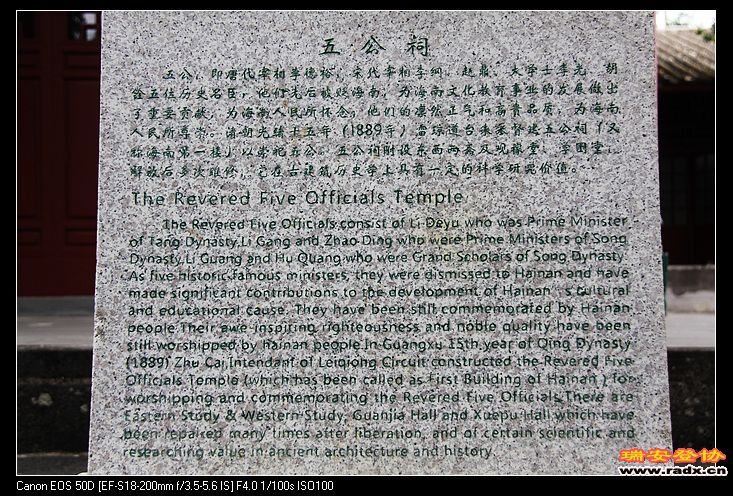 五公祠
五公，即唐代宰相李德裕，宋代宰相李纲、赵鼎、大学士李光、胡
铨五位历史名臣，他们先后被贬海南，为海南文化教育事业的发展做出
了重要贡献，为海南人民所怀念，他们的凛然正气和高贵品质，为海南
人民所尊崇。清朝光绪十五年（1889年）雷琼道台朱采督建五公祠（又
称海南第一楼）以崇祀五公。五公祠附设东西两斋及观稼堂、学圃堂，
解放后多次维修，它在古建筑历史学上具有一定的科学研究价值。
The Revered Five Officials Temple
The Revered Five Officials consist of Li Deyu who was Prime Minister
of Tang Dynasty,Li Gang and Zhao Ding who were Prime Ministers of Song
Dynasty,Li Guang and Hu Quang who were Grand Scholars of Song Dynasty.
As five historic famous ministers, they were dismissed to Hainan and have
made significant contributions to the development of Hainan's cultural
and educational cause. They have been still commemorated by Hainan
people.Their awe inspiring righteousness and noble quality have been
still worshipped by hainan people.In Guangxu 15th year of Qing Dynasty
(1889) Zhu Cai,Intendant of Leiqiong Circuit constructed the Revered Five
Officials Temple (which has been called as First Building of Hainan ) for
worshipping and commemorating the Revered Five Officials.There are
Eastern Study & Western Study, Guanjia Hall and Xuepu Hall which have
been repaired many times after liberation, and of certain scientific and
researching value in ancient architecture and history.
瑞安登协
www.radx.cn
瑞安登协
www.radx.cn
Canon EOS 50D [EF-S18-200mm f/3.5-5.6 IS] F4.0 1/100s ISO100